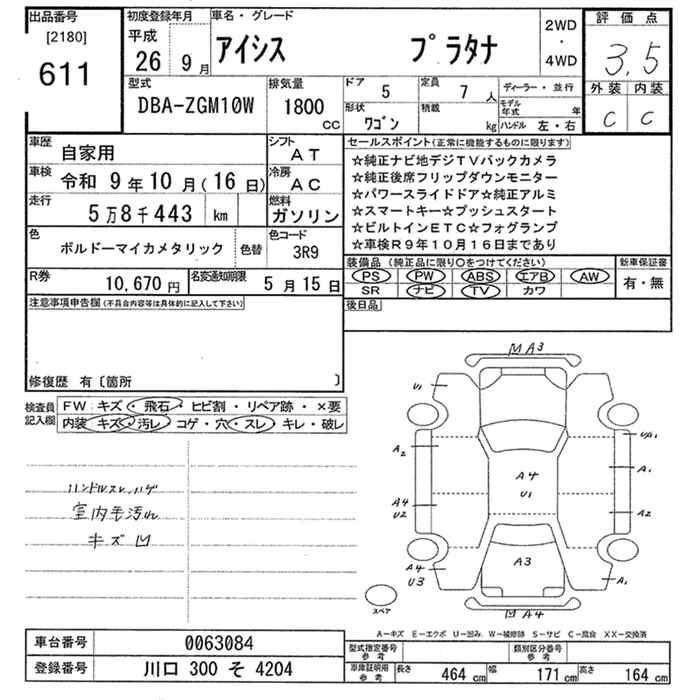 出品番号
[2180]
611
初度登録年月
平成
26 9月
車名・グレード
アイシス プラタナ
2WD
・
4WD
評価点
3.5
外装 内装
C C
型式
DBA-ZGM10W
排気量
1800
CC
ドア 5
定員 7人
形状
ワゴン
積載
kg
ディーラー・並行
モデル年式 年
ハンドル 左・右
車歴 自家用
シフト
AT
車検 令和 9年10月(16日)
冷房
AC
走行
5万8千443 km
燃料
ガソリン
色
ボルドーマイカメタリック
色替
色コード
3R9
R券 10,670円
名変通知期限 5月15日
セールスポイント(正常に機能するものに限ります)
☆純正ナビ地デジTVバックカメラ
☆純正後席フリップダウンモニター
☆パワースライドドア☆純正アルミ
☆スマートキー☆プッシュスタート
☆ビルトインETC☆フォグランプ
☆車検R9年10月16日まであり
装備品(純正品に限り○をつけてください)
PS PW ABS エアB AW
SR ナビ TV カワ
新車保証書
有・無
後日品
注意事項申告欄(不具合内容等は具体的に記入して下さい)
修復歴 有〔箇所 〕
検査員記入欄
FW キズ・飛石・ヒビ割・リペア跡・×要
内装 キズ・汚レ・コゲ・穴・スレ・キレ・破レ
ハンドルスレ、ハゲ
室内毛汚れ
キズ凹
M A3
U1
UA1
A2
A1
A4
U1
A4
U2
A2
A3
A4
U3
A1
スペア
M A4
A-キズ E-エクボ U-凹み W-補修跡 S-サビ C-腐食 XX-交換済
車台番号 0063084
登録番号 川口 300 そ 4204
型式指定番号
参考
類別区分番号
参考
車庫証明用
参考
長さ 464 cm 幅 171 cm 高さ 164 cm